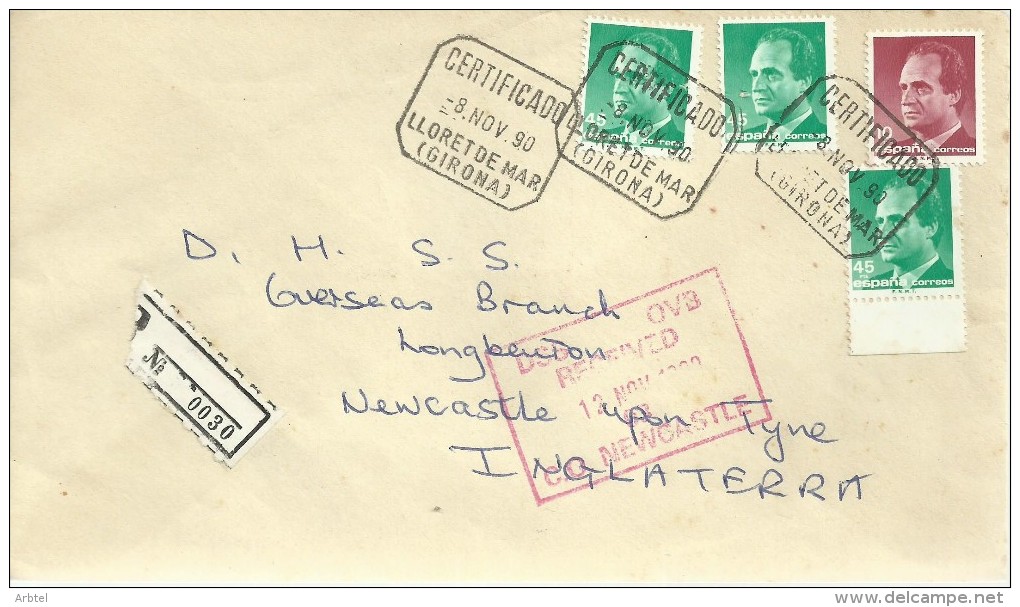 CERTIFICADO
-8. NOV. 90
LLORET DE MAR
(GIRONA)
CERTIFICADO
-8. NOV. 90
LLORET DE MAR
(GIRONA)
CERTIFICADO
8 NOV. 90
ET DE MAR
(GIRONA)
45
españa correos
45
españa correos
españa correos
45
PTA
españa correos
F.N.M.T.
D. H. S. S.
Overseas Branch
Longbenton
Newcastle upon Tyne
INGLATERRA
OVB
RECEIVED
12 NOV
C.O. NEWCASTLE
Nº
0030
Arbtel
delcampe.net